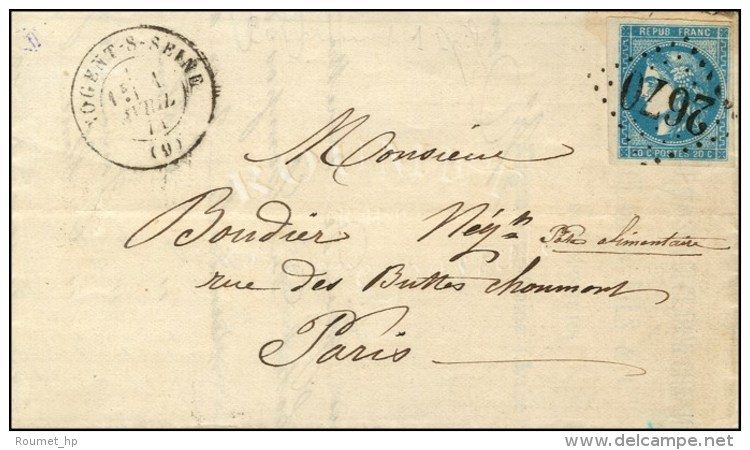 NOGENT-S-SEINE
AVRIL
71
(9)
REPUB FRANC
2670
20 C POSTES 20 C
Monsieur
Boudier Nég^ts Pâtes alimentaires
rue des Buttes Choumont
Paris
© Roumet_hp
delcampe.net